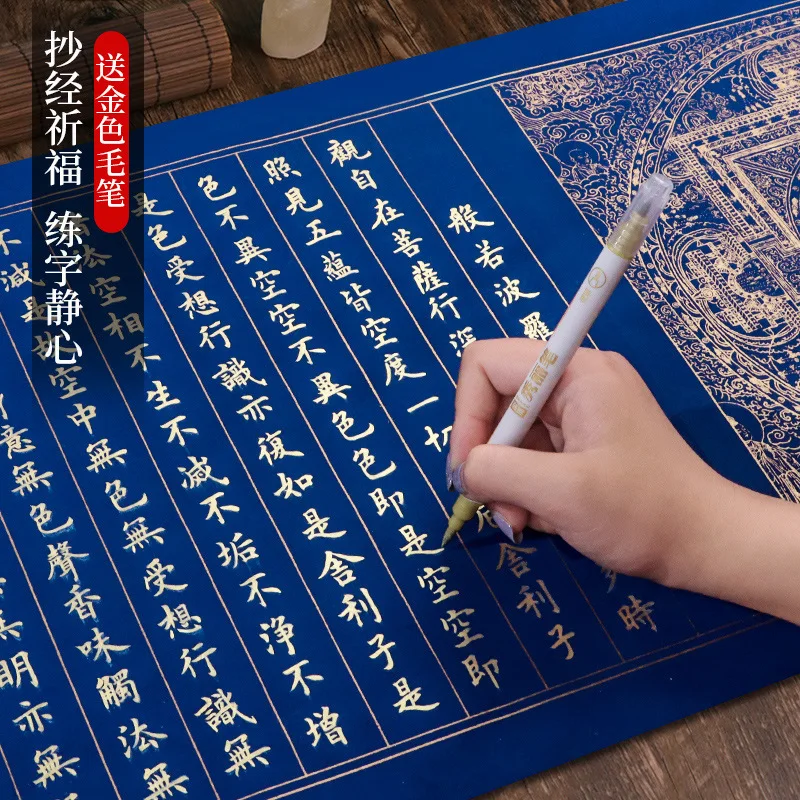 抄经祈福 练字静心
送金色毛笔
般若波羅
觀自在菩薩行深時
照見五蘊皆空度一切厄舍利子
色不異空空不異色色即是空空即
是色受想行識亦復如是舍利子是
法空相不生不减不垢不淨不增
不减是故空中無色無受想行識無
意無色聲香味觸法無
明亦無